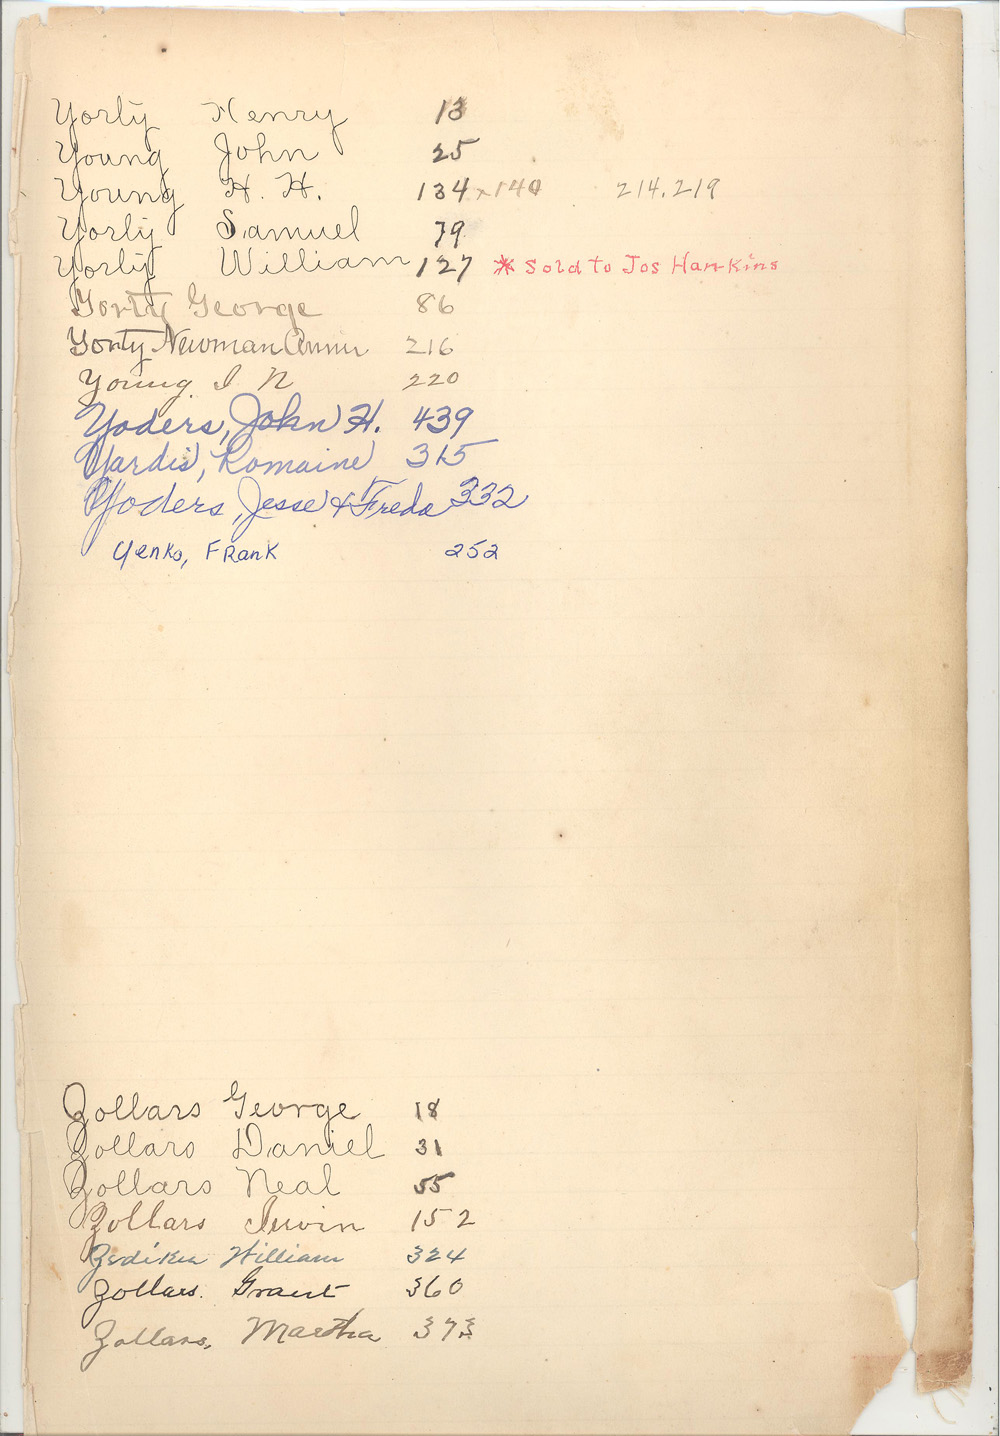 Yorty Henry 13
Young John 25
Young H. H. 134 x 140 214.219
Yorty Samuel 79
Yorty William 127 * Sold to Jos Hankins
Yorty George 86
Yorty Newman Annie 216
Young. I N 220
Yoders, John H. 439
Yardis, Romaine 315
Yoders, Jesse & Freda 332
Yenko, FRanK 252
Zollars George 18
Zollars Daniel 31
Zollars Neal 55
Zollars Irwin 152
William 324
Zollars. Grant 360
Zollars, Martha 373